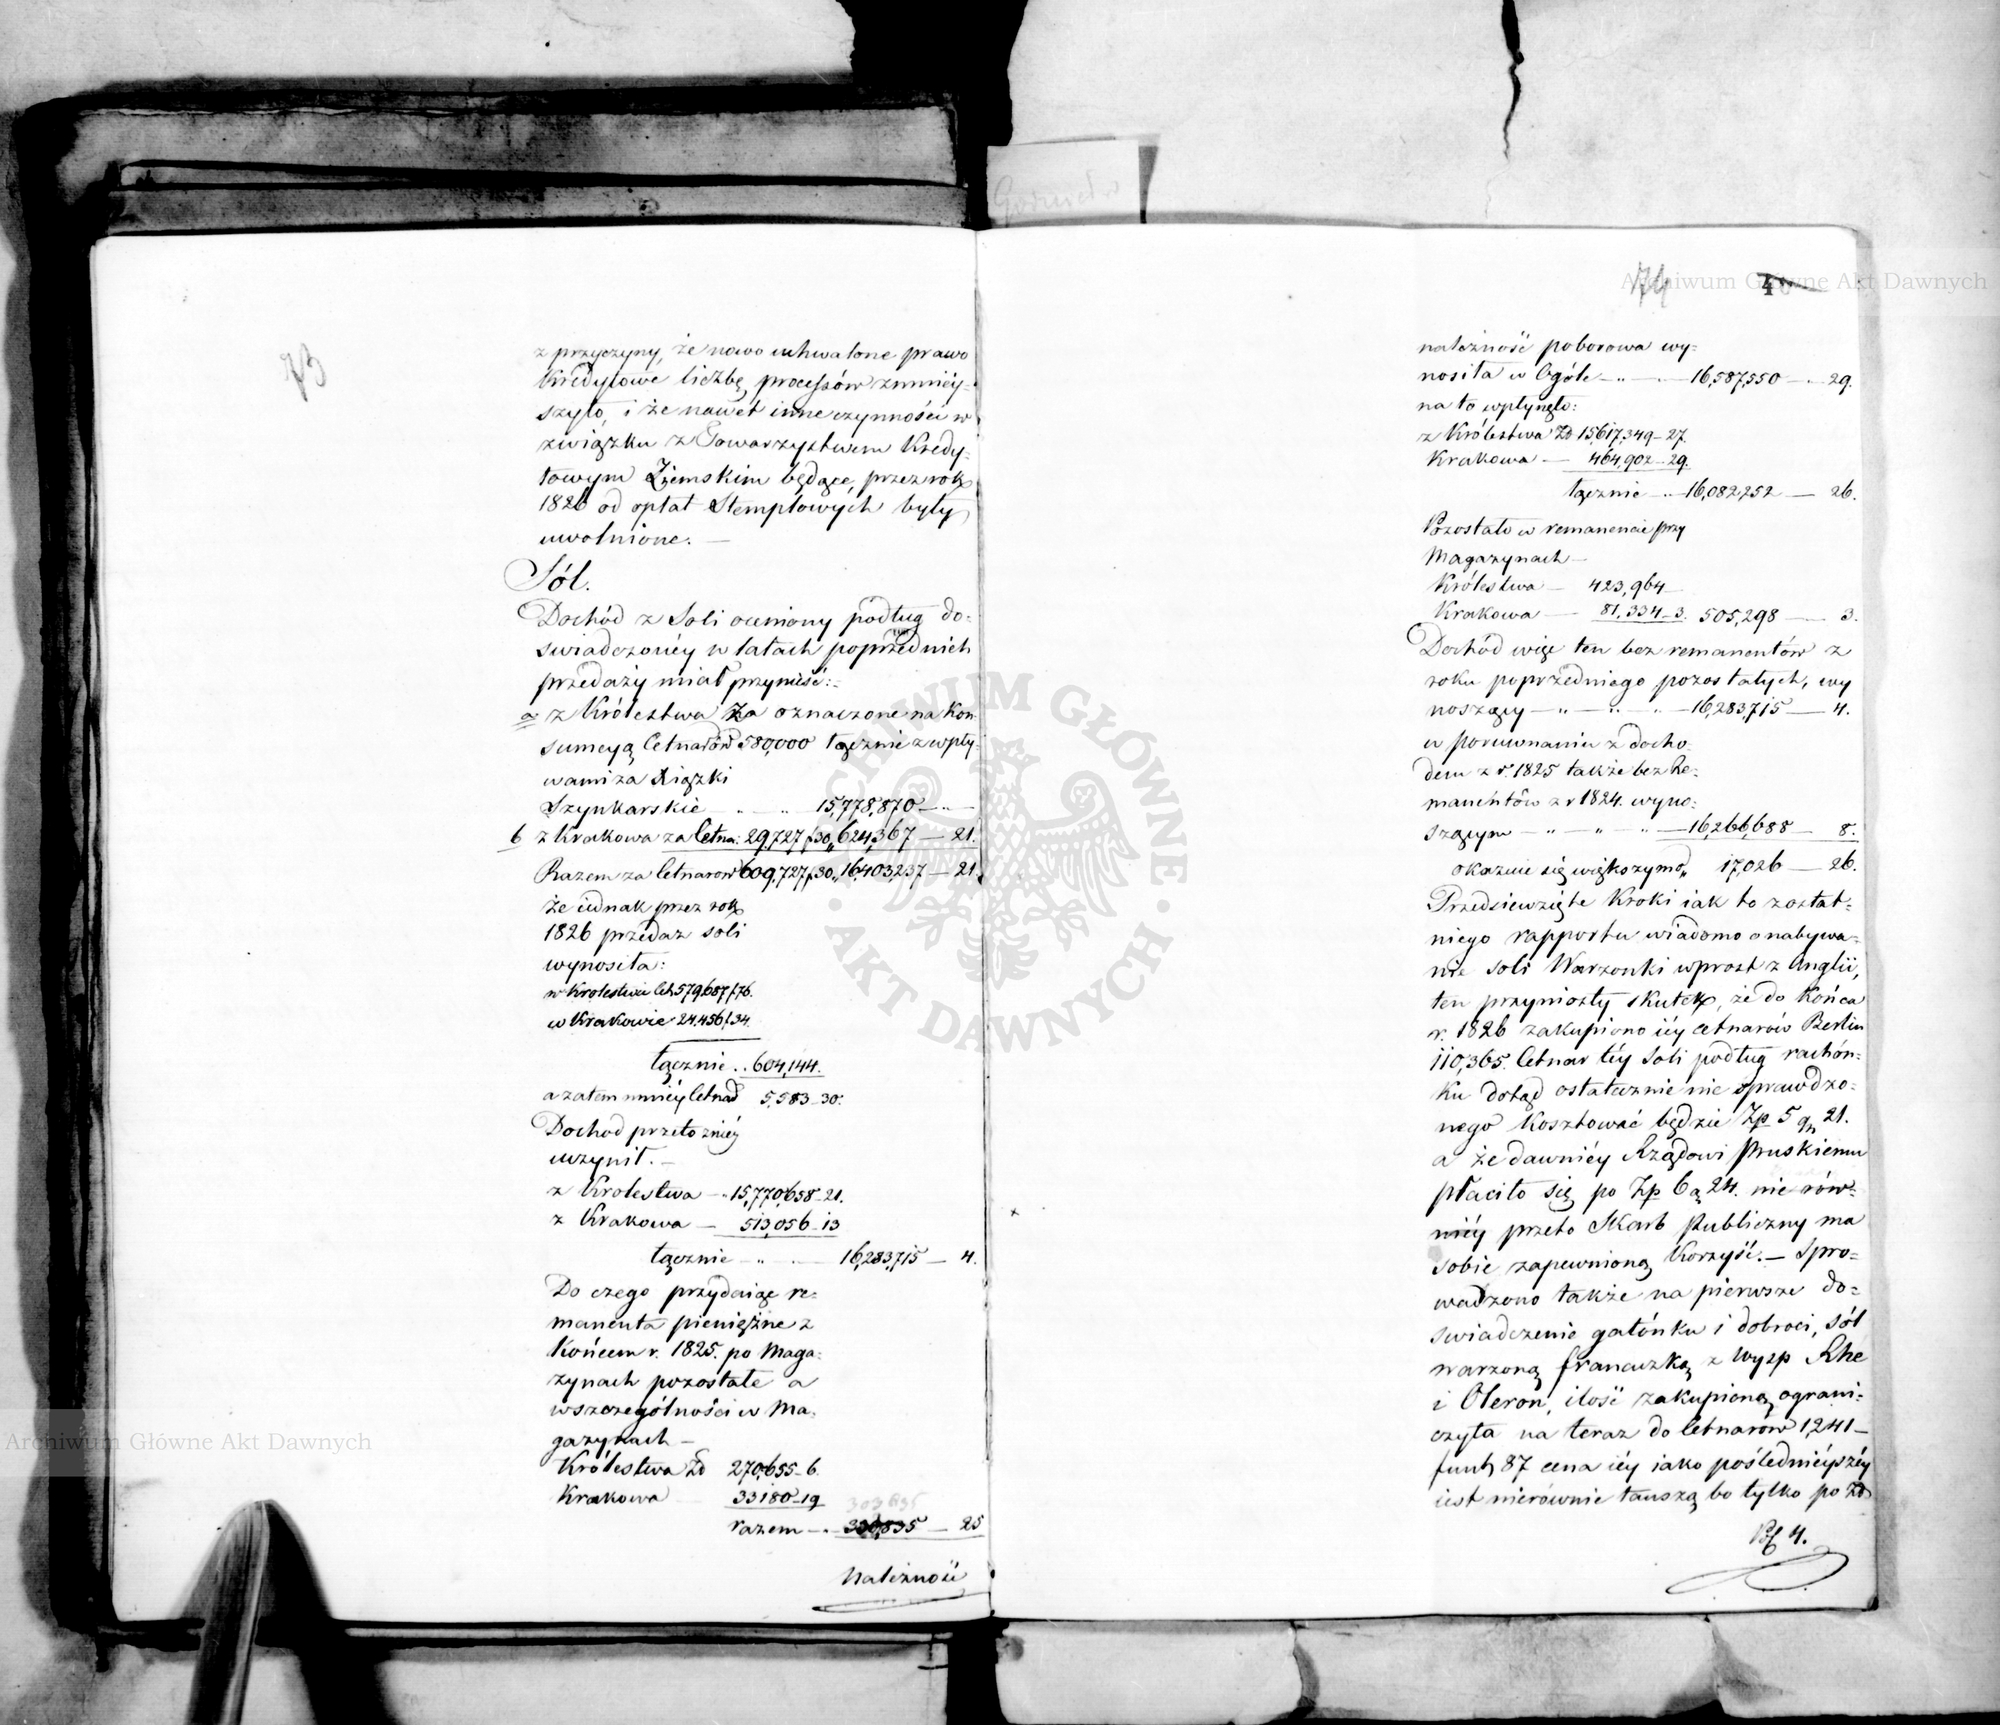 73
z przyczyny, że nowo uchwalone prawo
Kredytowe liczbę processów zmniéy-
szyło, i że nawet inne czynności w
związku z Towarzystwem Kredy-
towym Ziemskim będące, przez rok
1826 od opłat Stemplowych były
uwolnione. —
Sól.
Dochód z Soli oceniony podług do-
swiadczonéy w latach poprzednich
przedaży miał przynieść:
a z Królestwa za oznaczone na Kon-
sumcyą Cetnarów 580,000 łącznie z wpły-
wami za Xiążki
Szynkarskie — " — " 15,778,870 — " —
b z Krakowa za Cetna: 29,727 f 30 " 624,367 — 21.
Razem za Cetnarów 609,727 f 30 " 16,403,237 — 21.
że iednak przez rok
1826 przedaz soli
wynosiła:
w Krolestwie Cet. 579,687 f 76.
w Krakowie 24,456 f 34.
łącznie .. 604,144.
a zatem mniéy Cetnar 5,583 — 30.
Dochod przeto zniéy
uczynił. —
z Krolestwa — " 15,770,658 — 21.
z Krakowa — 513,056 — 13
łącznie — " — 16,283,715 — 4.
Do czego przydaiąc re-
manenta pieniężne z
Końcem r. 1825. po Maga-
zynach pozostałe a
wszczególności w Ma-
gazynach —
Królestwa Zł 270,655 — 6.
Krakowa 33180 — 19
303 835
razem — . 303,835 — 25
Należność
74
4
należność poborowa wy-
nosiła w Ogóle — " — 16,587,550 — . 29.
na to wpłynęło:
z Królestwa Zł 15,617,349 — 27.
Krakowa — 464,902 — 29.
łącznie — " 16,082,252 — 26.
Pozostało w remanencie przy
Magazynach —
Królestwa — 423,964 —
Krakowa — 81,334 — 3. 505,298 — 3.
Dochód więc ten bez remanentów z
roku poprzedniego pozostałych, wy
noszący — " — " — " — 16,283,715 — 4.
w porównaniu z docho-
dem z r. 1825 także bez Re-
manentów z r 1824. wyno-
szącym — " — " — " — 16,266,688 — 8.
okazuie się większym o 17,026 — 26.
Przedsiewzięte Kroki iak to z ostat-
niego rapportu wiadomo o nabywa-
nie soli Warzonki wprost z Anglii,
ten przyniosły skutek, że do Końca
r. 1826 zakupiono iéy cetnarów Berlin
110,365. Cetnar téy Soli podług rachón-
ku dotąd ostatecznie nie sprawdzo-
nego Kosztować będzie Zp 5 gr 21.
a że dawniéy Rządowi Pruskiemu
płaciło się po Zp 6 g 24. nie rów-
niéy przeto Skarb Publiczny ma
sobie zapewnioną Korzyść. — Spro-
wadzono także na pierwsze do-
swiadczenie gatónku i dobroci, sól
warzoną francuzką z Wysp Rhé
i Oleron, ilość zakupioną ograni-
czyła na teraz do Cetnarów 1,241 —
funt 87 cena iéy iako pośledniéyszéy
iest nierównie tańszą bo tylko po Zł